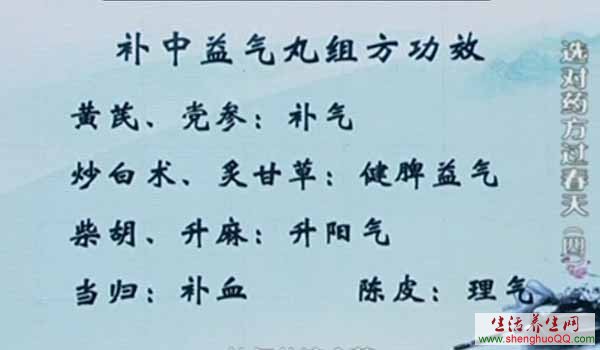 补中益气丸组方功效
黄芪、党参：补气
炒白术、炙甘草：健脾益气
柴胡、升麻：升阳气
当归：补血 陈皮：理气
选对药方过春天（四）
生活养生网
www.shenghuoQQ.com